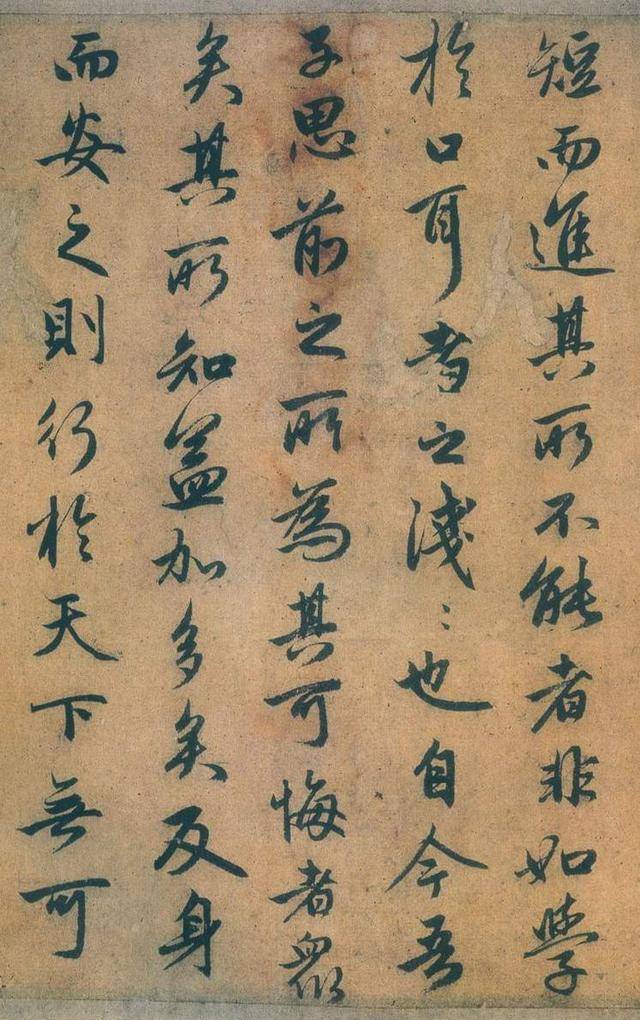 短而進其所不能者非如學
於口耳者之淺〻也自今吾
子思前之所為其可悔者衆
矣其所知益加多矣反身
而安之則行於天下無可